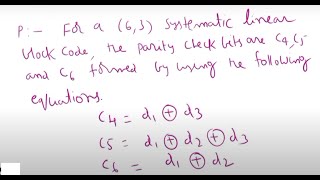 P:- For a (6,3) systematic linear
block code, the parity check bits are C4,C5
and C6 formed by using the following
equations.
C4 = d1 ⊕ d3
C5 = d1 ⊕ d2 ⊕ d3
C6 = d1 ⊕ d2